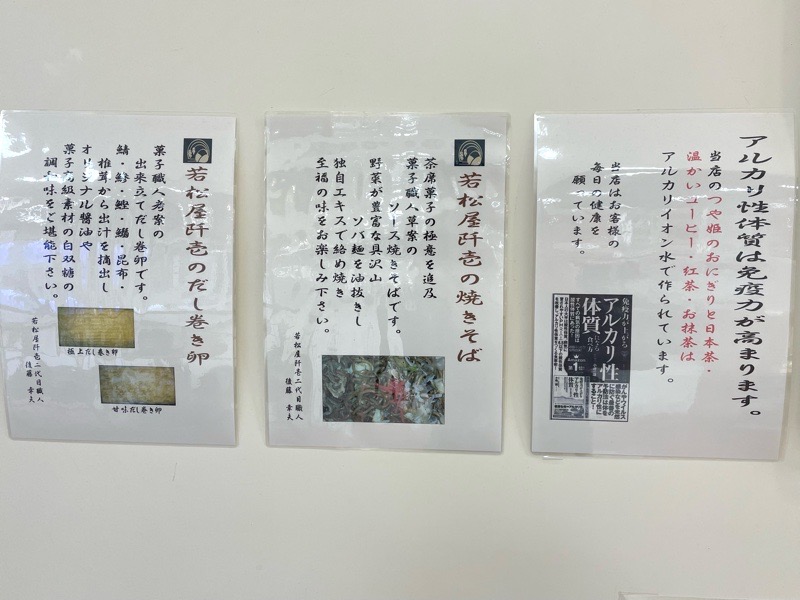 アルカリ性体質は免疫力が高まります。
当店のつや姫のおにぎりと日本茶・
温かいコーヒー・紅茶・お抹茶は
アルカリイオン水で作られています。
当店はお客様の
毎日の健康を
願っています。
免疫力が上がる
アルカリ性
体質になる
食べ方
若松屋阡壱の焼きそば
茶席菓子の極意を追及
菓子職人草案の
ソース焼きそばです。
野菜が豊富な具沢山
ソバ麺を油抜きし
独自エキスで絡め焼き
至福の味をお楽しみ下さい。
若松屋阡壱二代目職人
後藤 幸夫
若松屋阡壱のだし巻き卵
菓子職人考案の
出来立てだし巻卵です。
鯖・鯵・鰹・鰯・昆布・
椎茸から出汁を摘出し
オリジナル醤油や
菓子高級素材の白双糖の
調和味をご堪能下さい。
極上だし巻き卵
甘味だし巻き卵
若松屋阡壱二代目職人
後藤 幸夫